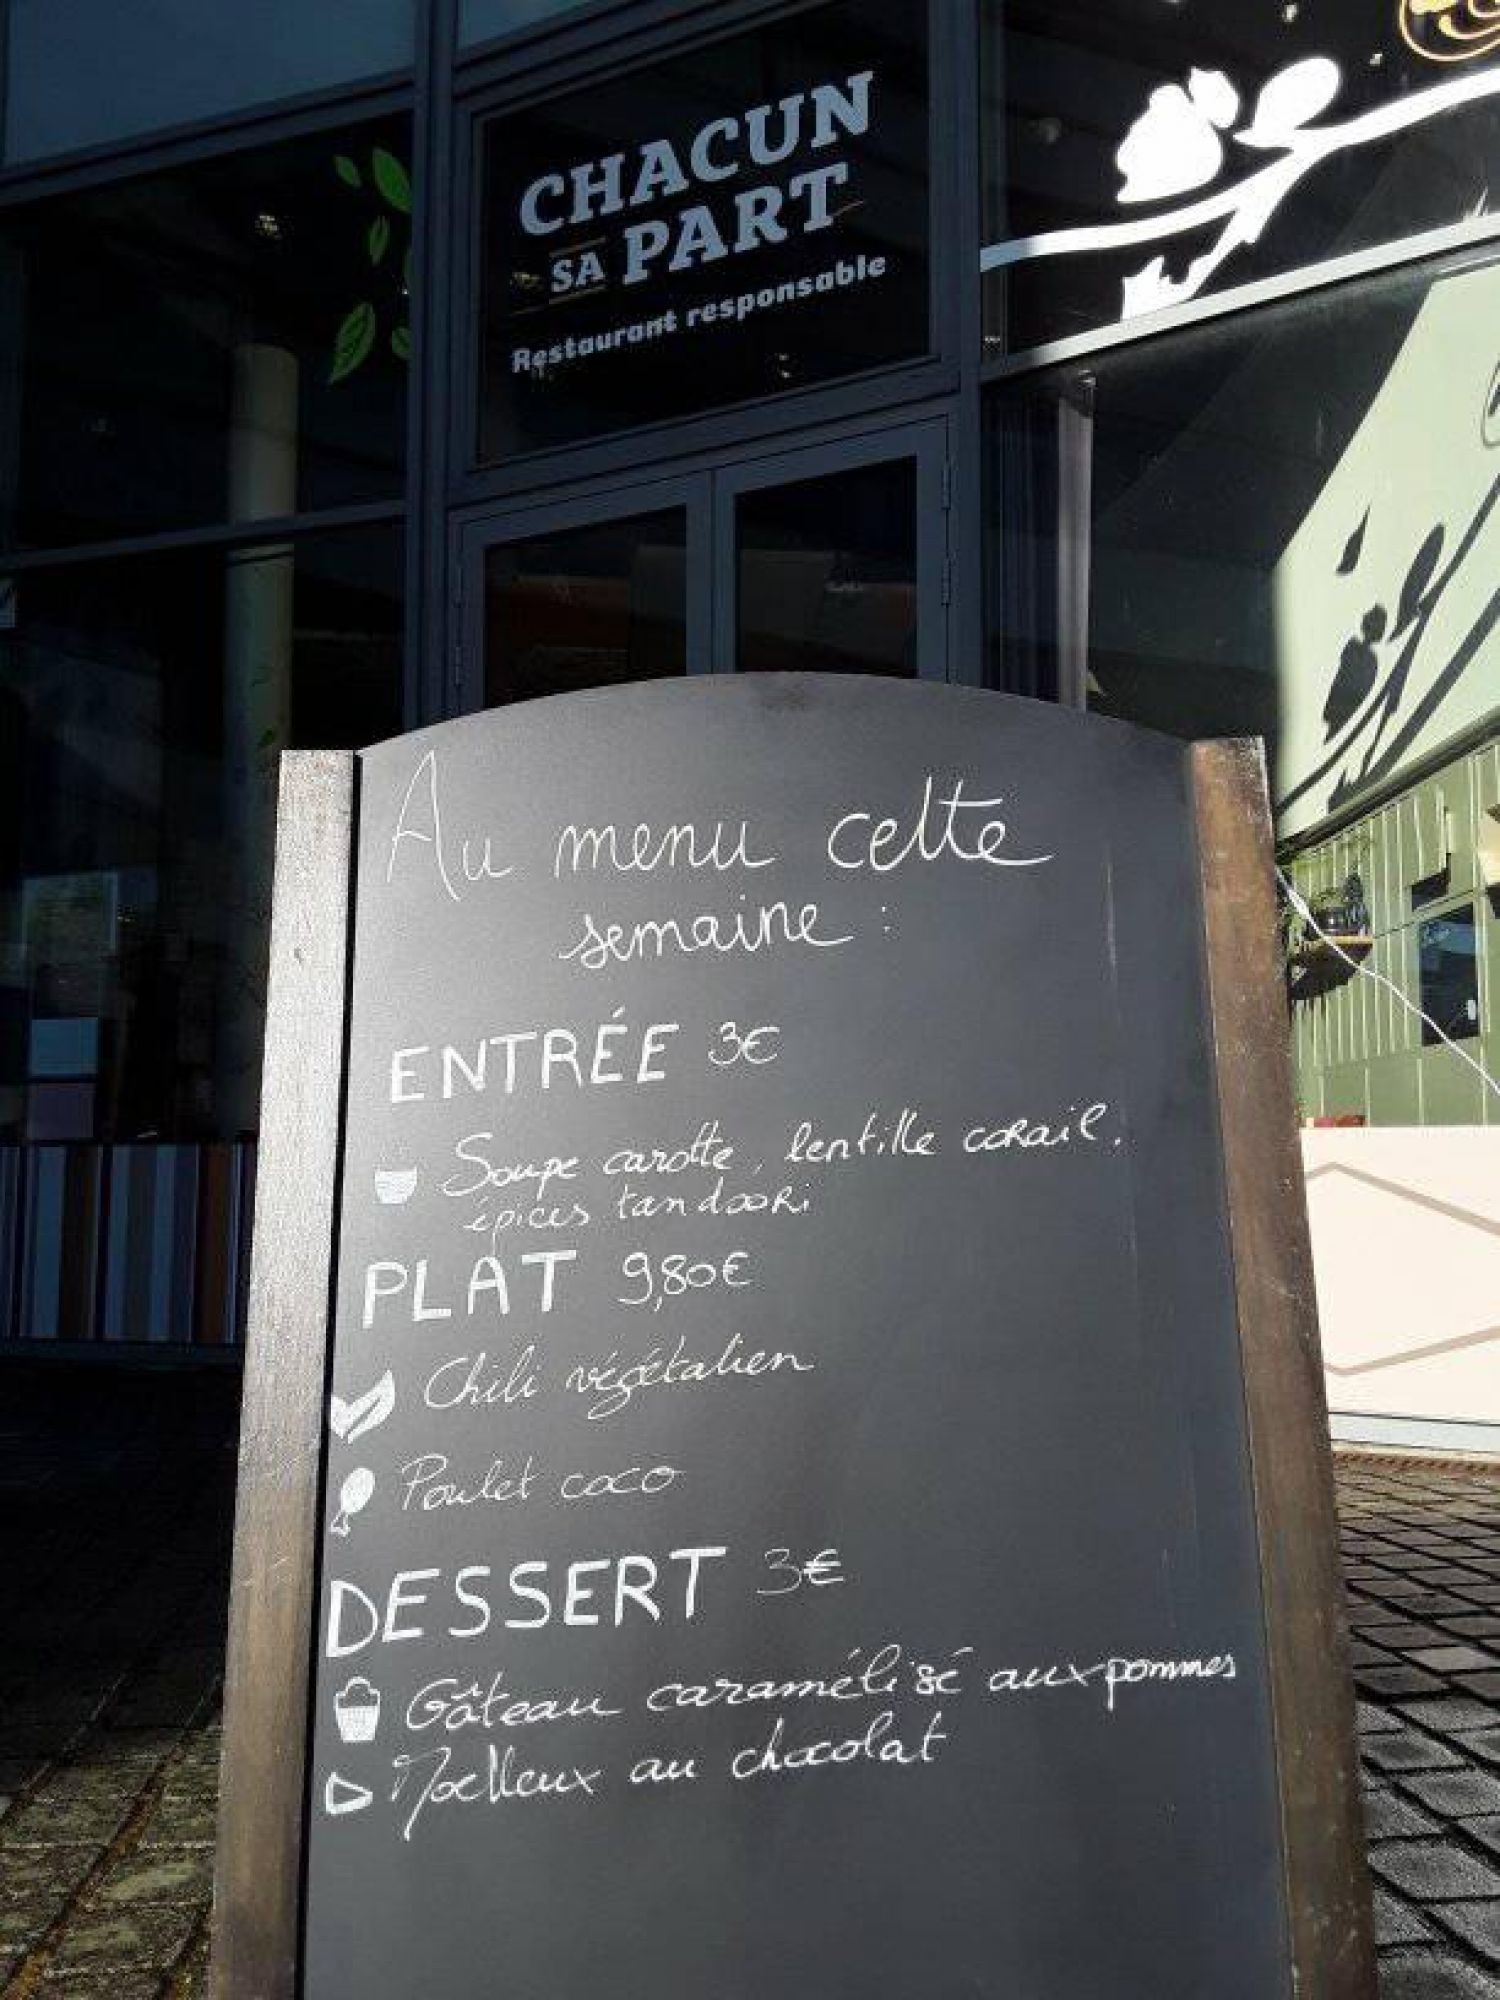 CHACUN
SA PART
Restaurant responsable
Au menu cette
semaine :
ENTRÉE 3€
Soupe carotte, lentille corail,
épices tandoori
PLAT 9,80€
Chili végétalien
Poulet coco
DESSERT 3€
Gâteau caramélisé aux pommes
Moelleux au chocolat